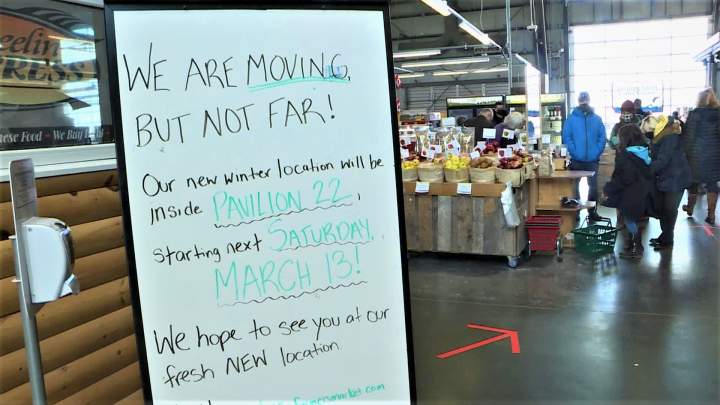 WE ARE MOVING,
BUT NOT FAR!
Our new winter location will be
inside PAVILION 22,
starting next SATURDAY,
MARCH 13!
We hope to see you at our
fresh NEW location.
Food - We Buy